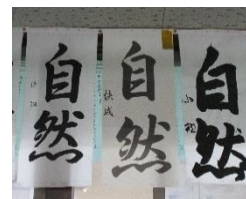 自然
自然
自然